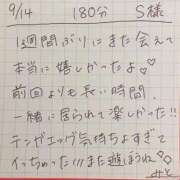 9/14 180分 S様
1週間ぶりにまた会えて
本当に嬉しかったよ♡
前回よりも長い時間
一緒に居られて楽しかった!!
テンガエッグ気持ちよすぎて
イっちゃった!!!また遊ぼうね♡